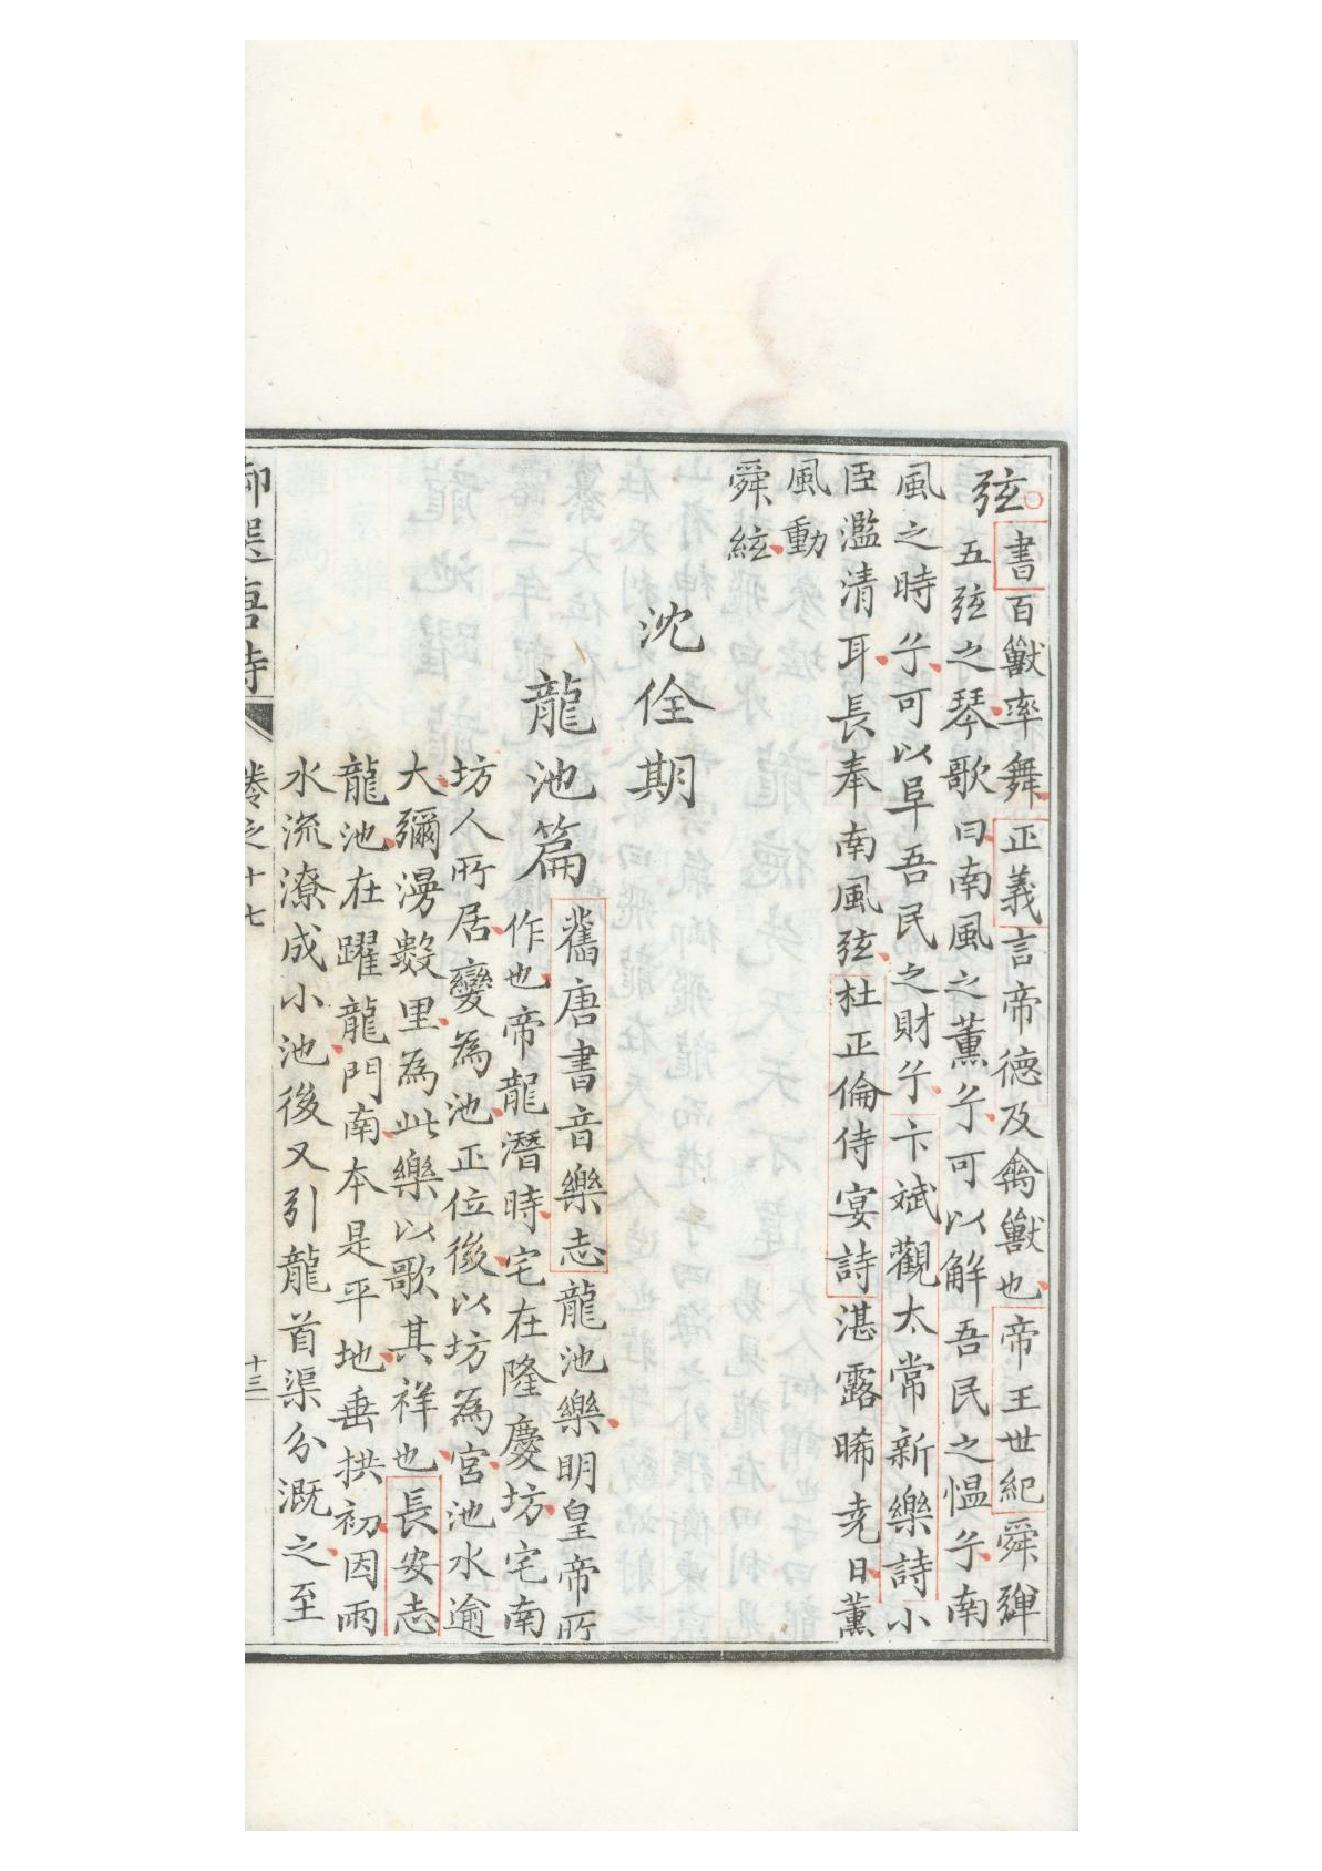 弦
書百獸率舞正義言帝德及禽獸也帝王世紀舜彈
五弦之琴歌曰南風之薰兮可以解吾民之愠兮南
風之時兮可以阜吾民之財兮卞斌觀太常新樂詩小
臣濫清耳長奉南風弦杜正倫侍宴詩湛露晞堯日薰
風動
舜絃
沈佺期
龍池篇
舊唐書音樂志龍池樂明皇帝所
作也帝龍潛時宅在隆慶坊宅南
坊人所居變為池正位後以坊為宮池水逾
大彌漫數里為此樂以歌其祥也長安志
龍池在躍龍門南本是平地垂拱初因雨
水流潦成小池後又引龍首渠分溉之至
御選唐詩 卷之十七 十三